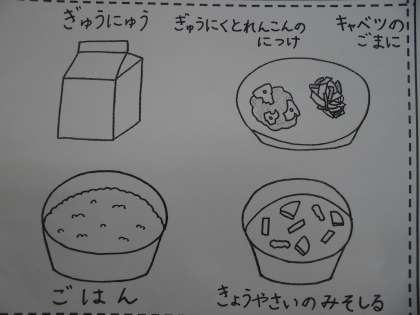 ぎゅうにゅう
ぎゅうにくとれんこんの
につけ
キャベツの
ごまに
ごはん
きょうやさいのみそしる